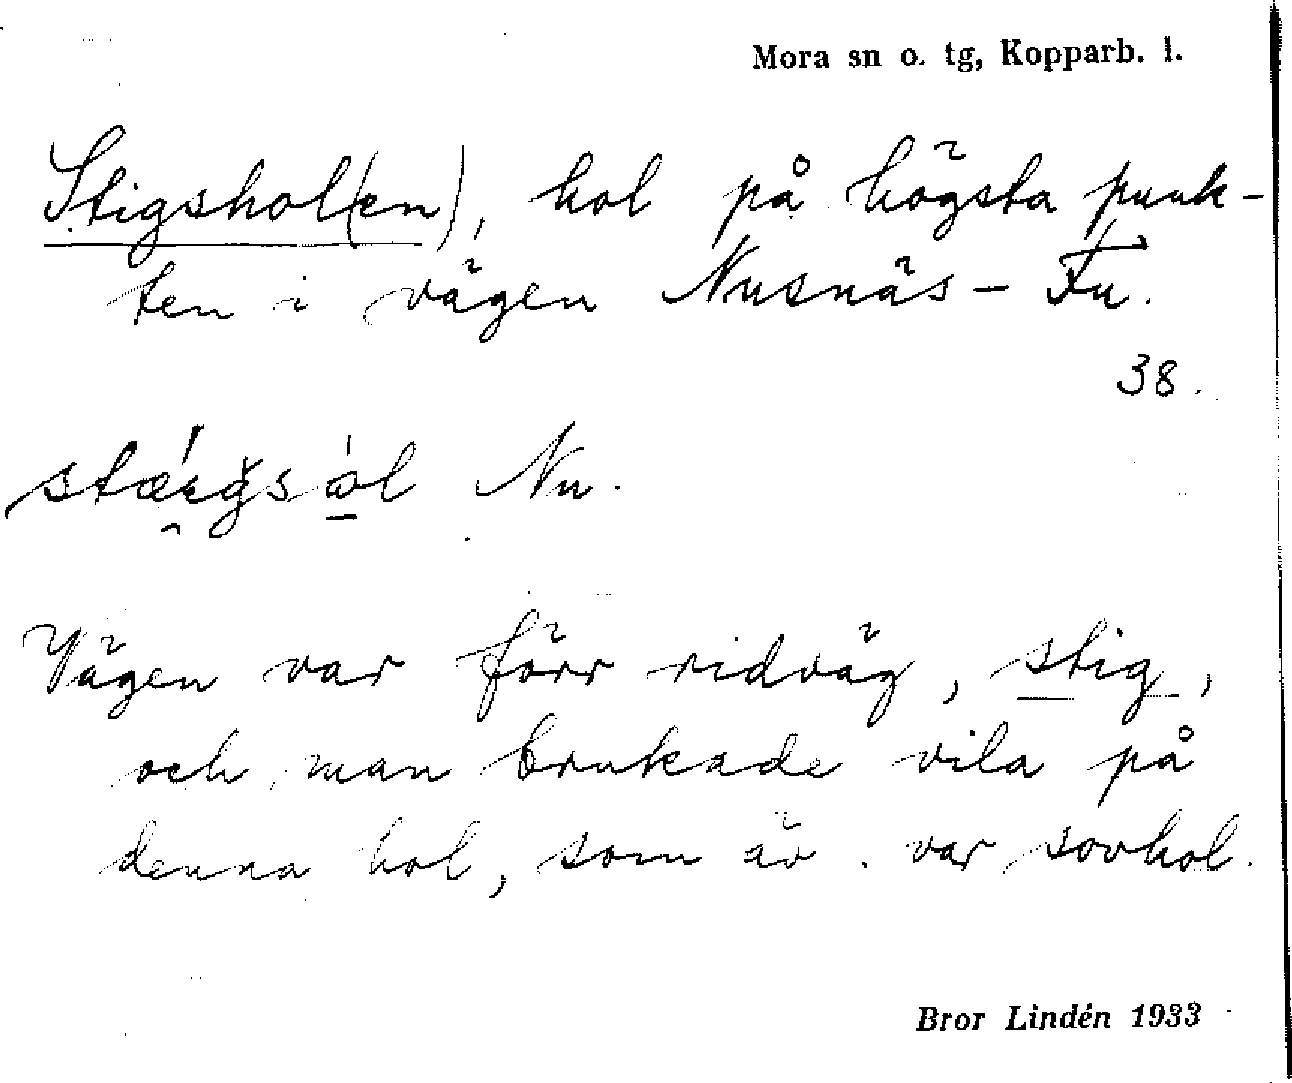 Mora sn o. tg, Kopparb. l.
Stigshol(en), hol på högsta punk-
ten i vägen Nusnäs – Fu.
38.
Nu.
Vägen var förr ridväg, stig,
och man brukade vila på
denna hol, som äv. var sovhol.
Bror Lindén 1933